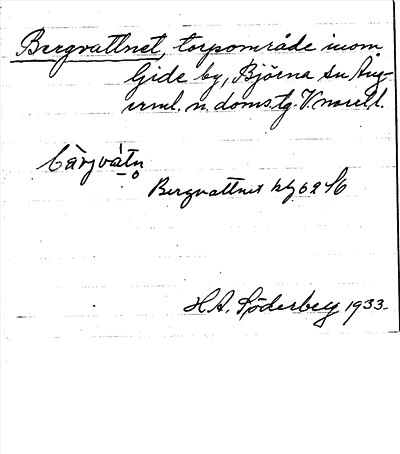 Bergvattnet, torpområde inom
Gide by, Björna sn Ång-
erml. n. doms.tg. V.norrl.l.
bàrjvátn
Bergvattnet
H.A. Söderberg 1933.